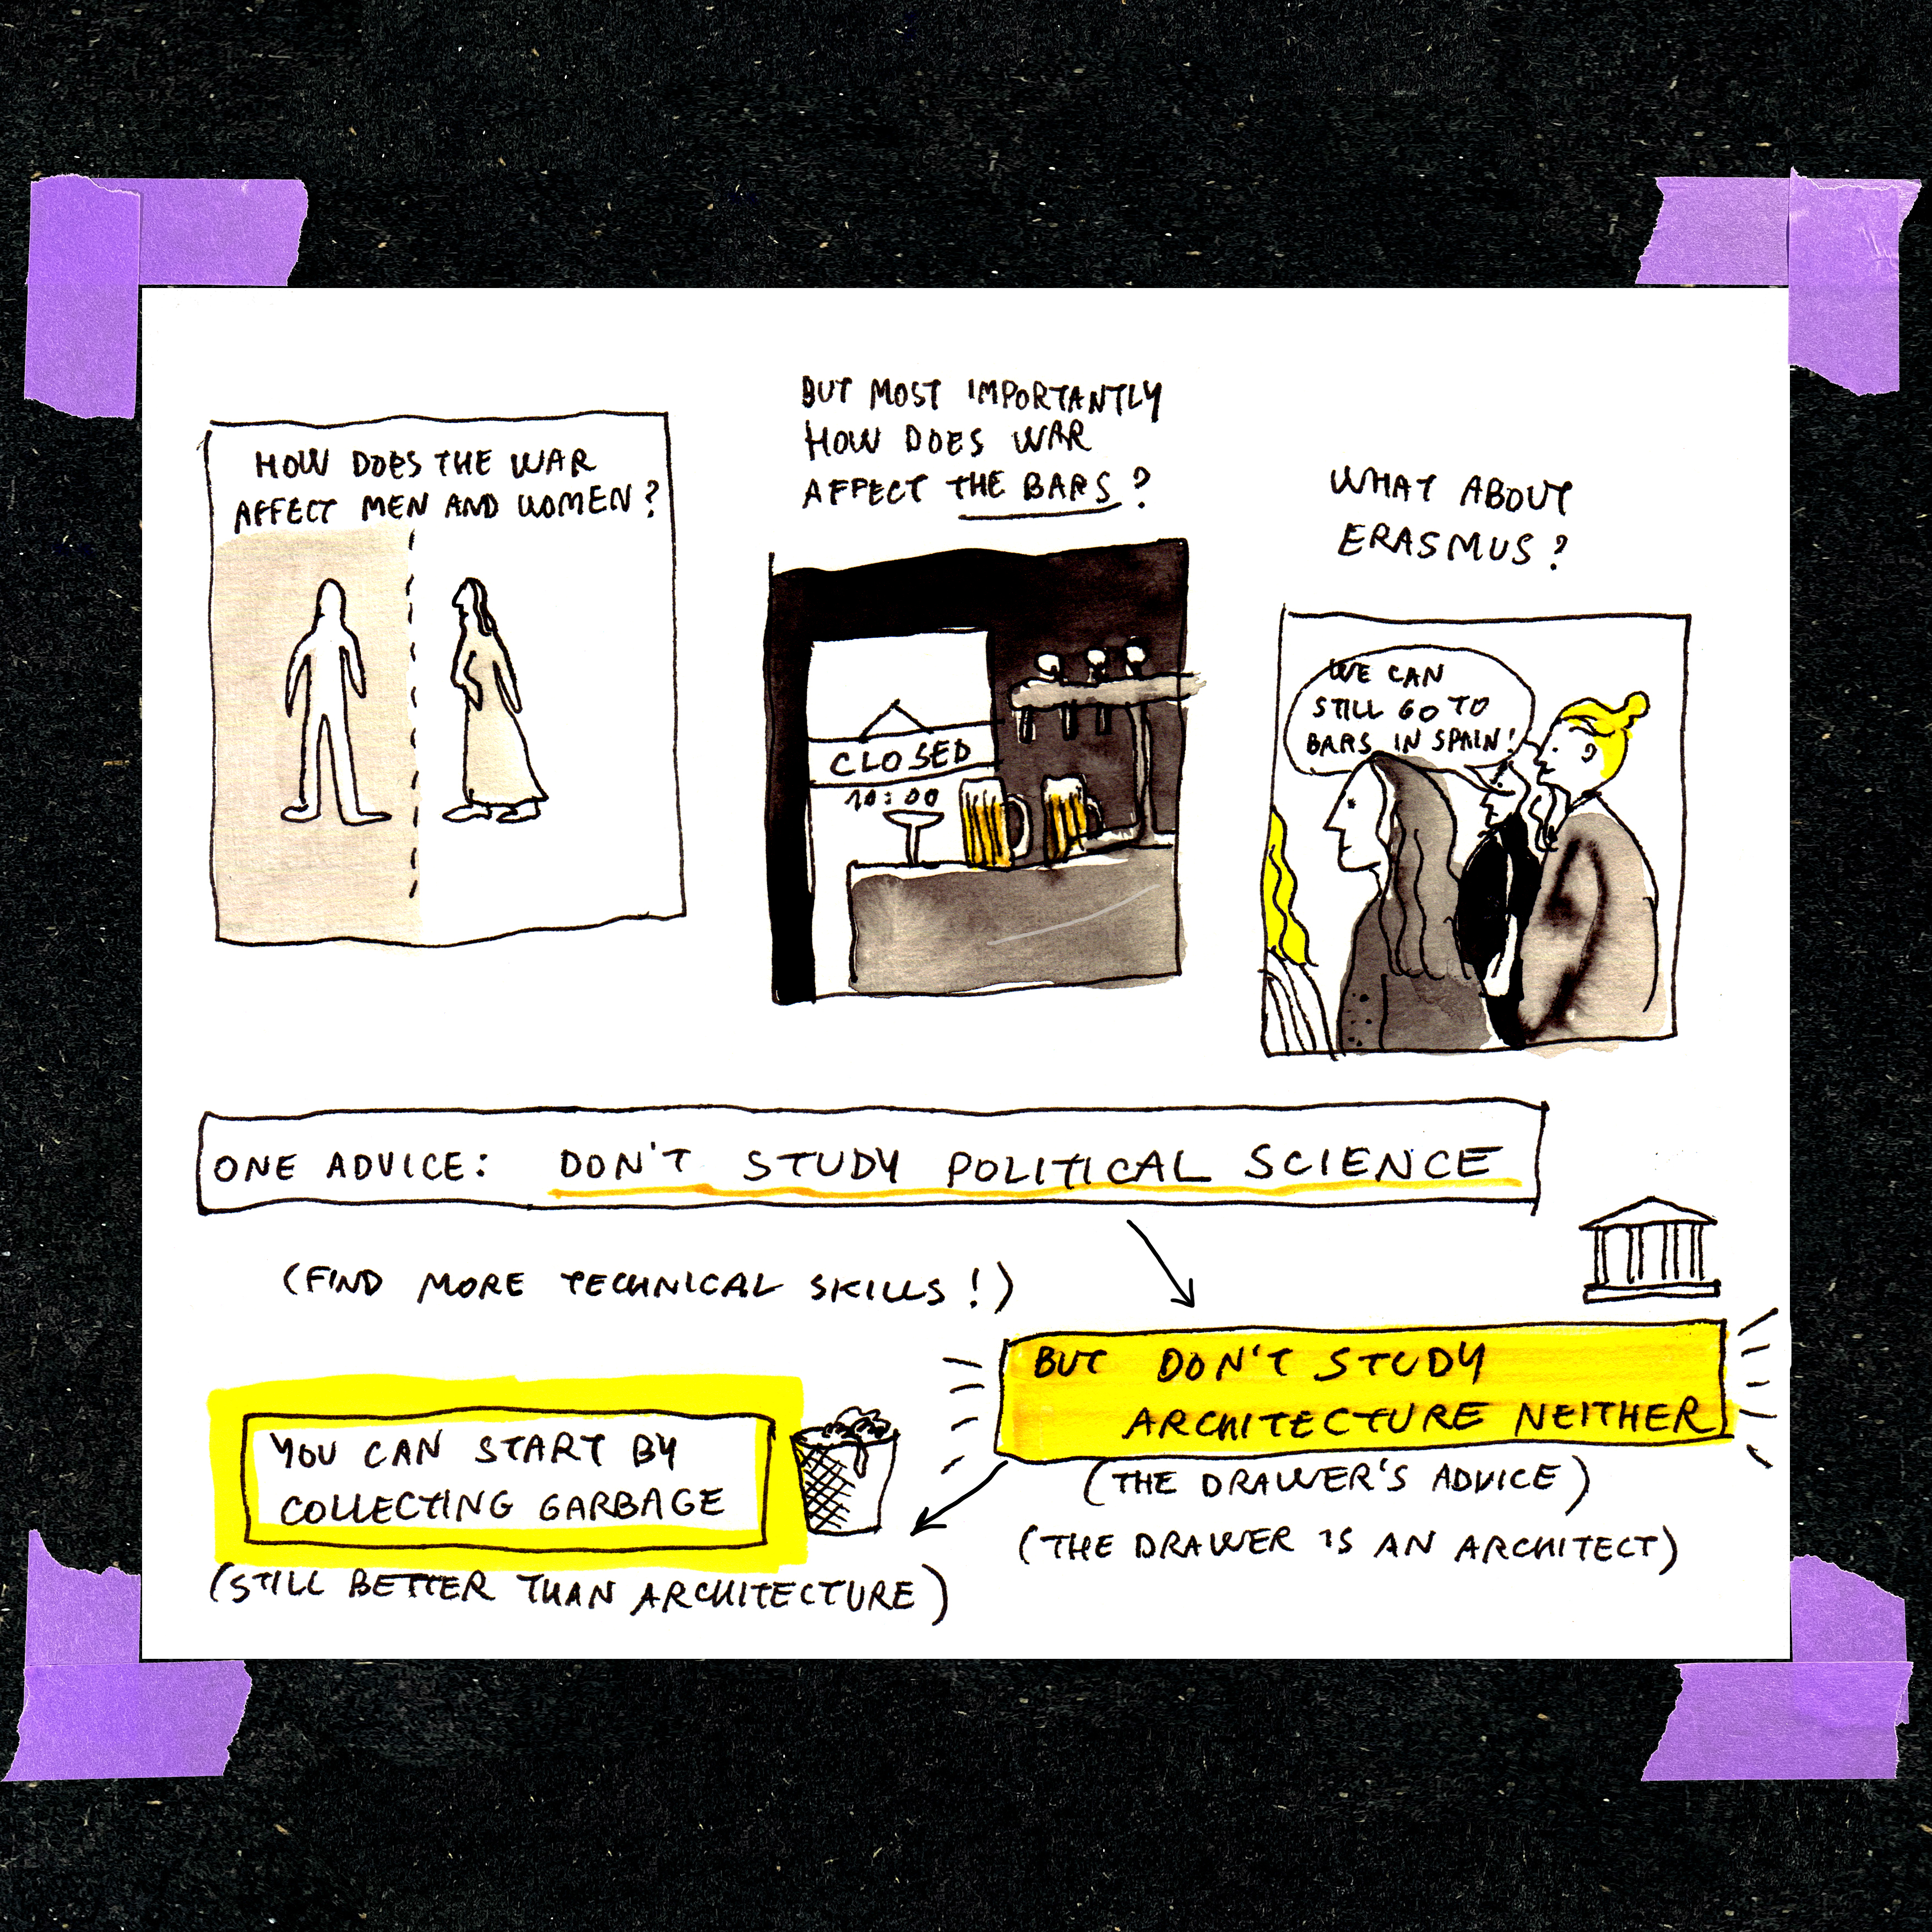 HOW DOES THE WAR
AFFECT MEN AND WOMEN?
BUT MOST IMPORTANTLY
HOW DOES WAR
AFFECT THE BARS?
CLOSED
10:00
WHAT ABOUT
ERASMUS?
WE CAN
STILL GO TO
BARS IN SPAIN!
ONE ADVICE: DON'T STUDY POLITICAL SCIENCE
(FIND MORE TECHNICAL SKILLS!)
BUT DON'T STUDY
ARCHITECTURE NEITHER
(THE DRAWER'S ADVICE)
(THE DRAWER IS AN ARCHITECT)
YOU CAN START BY
COLLECTING GARBAGE
(STILL BETTER THAN ARCHITECTURE)